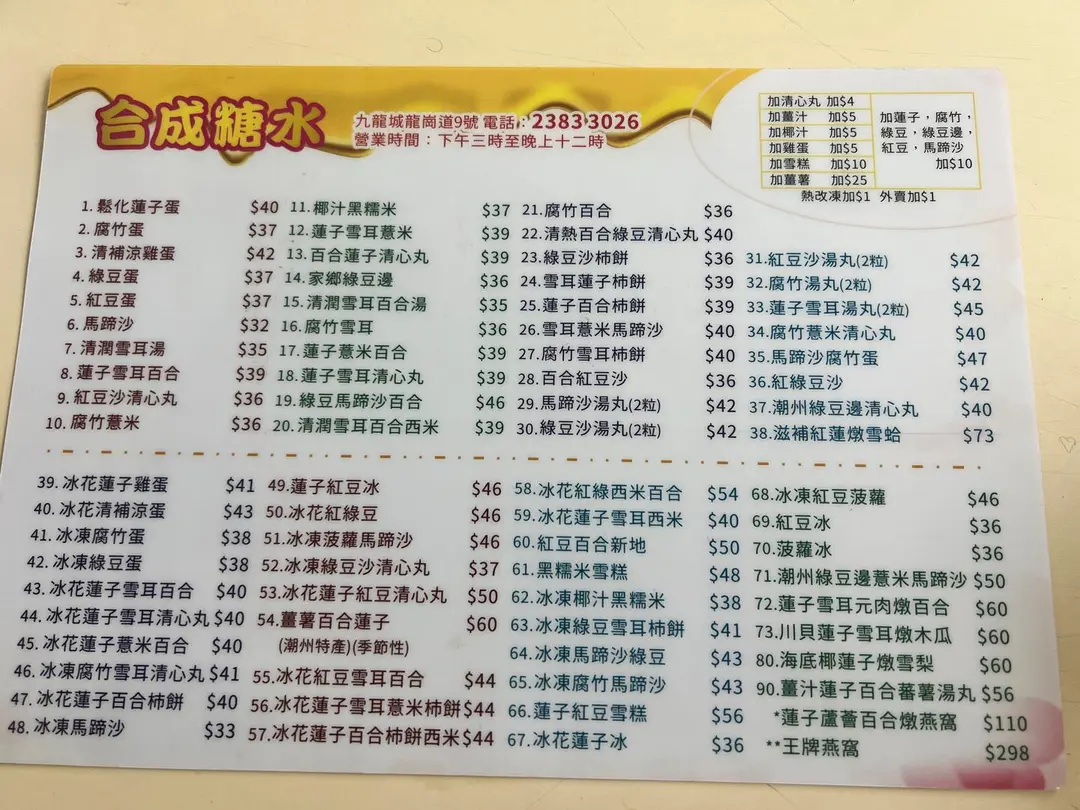 合成糖水
九龍城龍崗道9號 電話：2383 3026
營業時間：下午三時至晚上十二時
加清心丸 加$4
加薑汁 加$5
加椰汁 加$5
加雞蛋 加$5
加雪糕 加$10
加薑薯 加$25
加蓮子，腐竹，
綠豆，綠豆邊，
紅豆，馬蹄沙
加$10
熱改凍加$1 外賣加$1
1. 鬆化蓮子蛋 $40
2. 腐竹蛋 $37
3. 清補涼雞蛋 $42
4. 綠豆蛋 $37
5. 紅豆蛋 $37
6. 馬蹄沙 $32
7. 清潤雪耳湯 $35
8. 蓮子雪耳百合 $39
9. 紅豆沙清心丸 $36
10. 腐竹薏米 $36
11. 椰汁黑糯米 $37
12. 蓮子雪耳薏米 $39
13. 百合蓮子清心丸 $39
14. 家鄉綠豆邊 $36
15. 清潤雪耳百合湯 $35
16. 腐竹雪耳 $36
17. 蓮子薏米百合 $39
18. 蓮子雪耳清心丸 $39
19. 綠豆馬蹄沙百合 $46
20. 清潤雪耳百合西米 $39
21. 腐竹百合 $36
22. 清熱百合綠豆清心丸 $40
23. 綠豆沙柿餅 $36
24. 雪耳蓮子柿餅 $39
25. 蓮子百合柿餅 $39
26. 雪耳薏米馬蹄沙 $40
27. 腐竹雪耳柿餅 $40
28. 百合紅豆沙 $36
29. 馬蹄沙湯丸(2粒) $42
30. 綠豆沙湯丸(2粒) $42
31. 紅豆沙湯丸(2粒) $42
32. 腐竹湯丸(2粒) $42
33. 蓮子雪耳湯丸(2粒) $45
34. 腐竹薏米清心丸 $40
35. 馬蹄沙腐竹蛋 $47
36. 紅綠豆沙 $42
37. 潮州綠豆邊清心丸 $40
38. 滋補紅蓮燉雪蛤 $73
39. 冰花蓮子雞蛋 $41
40. 冰花清補涼蛋 $43
41. 冰凍腐竹蛋 $38
42. 冰凍綠豆蛋 $38
43. 冰花蓮子雪耳百合 $40
44. 冰花蓮子雪耳清心丸 $40
45. 冰花蓮子薏米百合 $40
46. 冰凍腐竹雪耳清心丸 $41
47. 冰花蓮子百合柿餅 $40
48. 冰凍馬蹄沙 $33
49. 蓮子紅豆冰 $46
50. 冰花紅綠豆 $46
51. 冰凍菠蘿馬蹄沙 $46
52. 冰凍綠豆沙清心丸 $37
53. 冰花蓮子紅豆清心丸 $50
54. 薑薯百合蓮子 $60
(潮州特產)(季節性)
55. 冰花紅豆雪耳百合 $44
56. 冰花蓮子雪耳薏米柿餅 $44
57. 冰花蓮子百合柿餅西米 $44
58. 冰花紅綠西米百合 $54
59. 冰花蓮子雪耳西米 $40
60. 紅豆百合新地 $50
61. 黑糯米雪糕 $48
62. 冰凍椰汁黑糯米 $38
63. 冰凍綠豆雪耳柿餅 $41
64. 冰凍馬蹄沙綠豆 $43
65. 冰凍腐竹馬蹄沙 $43
66. 蓮子紅豆雪糕 $56
67. 冰花蓮子冰 $36
68. 冰凍紅豆菠蘿 $46
69. 紅豆冰 $36
70. 菠蘿冰 $36
71. 潮州綠豆邊薏米馬蹄沙 $50
72. 蓮子雪耳元肉燉百合 $60
73. 川貝蓮子雪耳燉木瓜 $60
80. 海底椰蓮子燉雪梨 $60
90. 薑汁蓮子百合蕃薯湯丸 $56
*蓮子蘆薈百合燉燕窩 $110
**王牌燕窩 $298